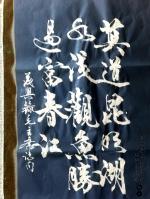 莫道昆明湖
水淺觀魚勝
過富春江